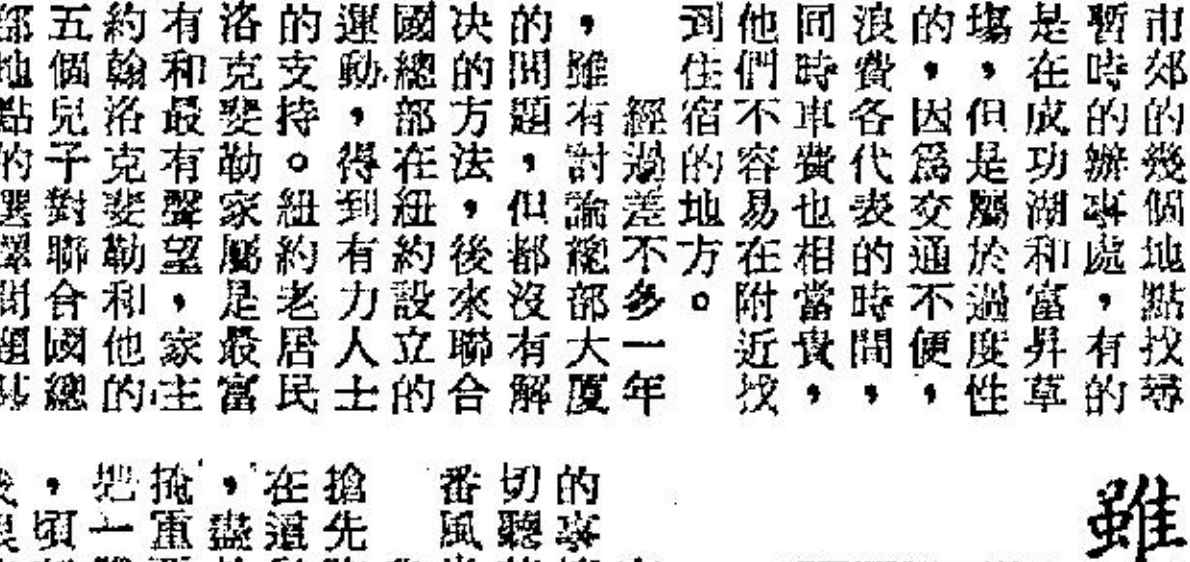 市郊的幾個地點找尋
暫時的辦事處，有的
是在成功湖和富昇草
塲，但是屬於過度性
的，因爲交通不便，
浪費各代表的時間，
同時車費也相當貴，
他們不容易在附近找
到住宿的地方。
經過差不多一年
，雖有討論總部大厦
的問題，但都沒有解
决的方法，後來聯合
國總部在紐約設立的
運動，得到有力人士
的支持。紐約老居民
洛克斐勒家屬是最富
有和最有聲望，家主
約翰洛克斐勒和他的
五個兒子對聯合國總
部地點的選擇問題
的事
切聽
番風
搶先
在這
，盡
掩重
把一
，頃
雖